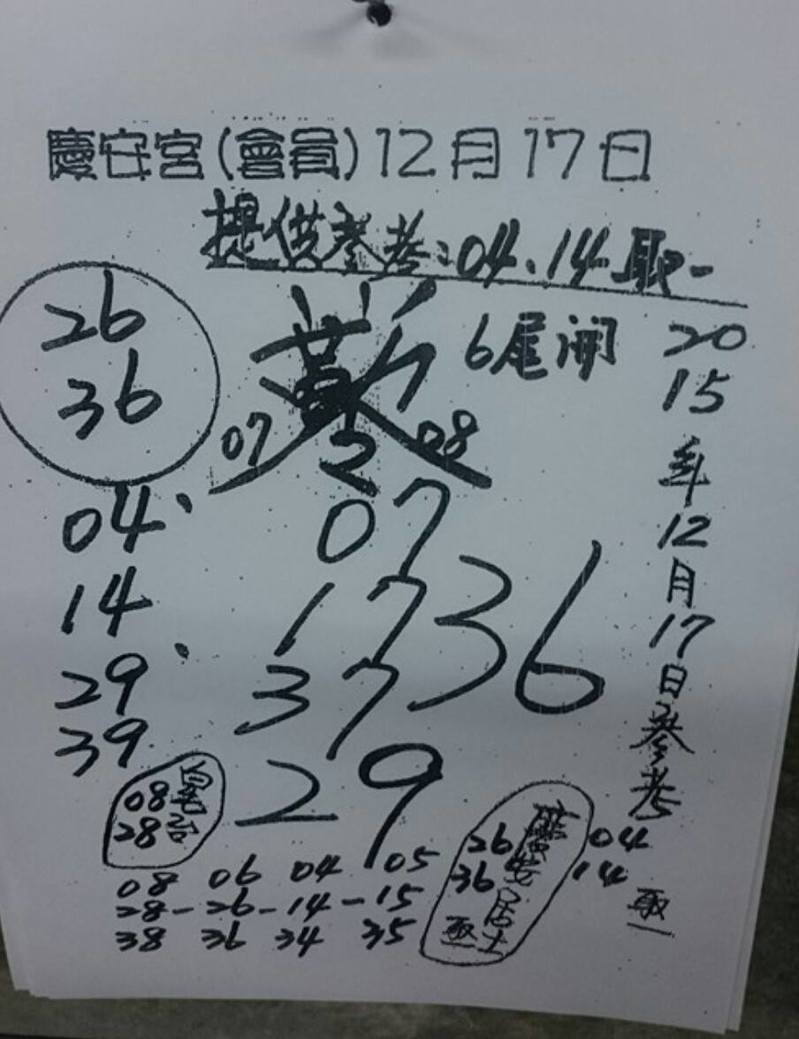 慶安宮(會員)12月17日
提供參考:04、14取一
26
36
6尾開
07
2
08
04、
14
29
39
07
17
37
36
29
2015年12月17日參考
08
28
26
36
居士
取
04
14
取一
08 06 04 05
28-26-14-15
38 36 34 35